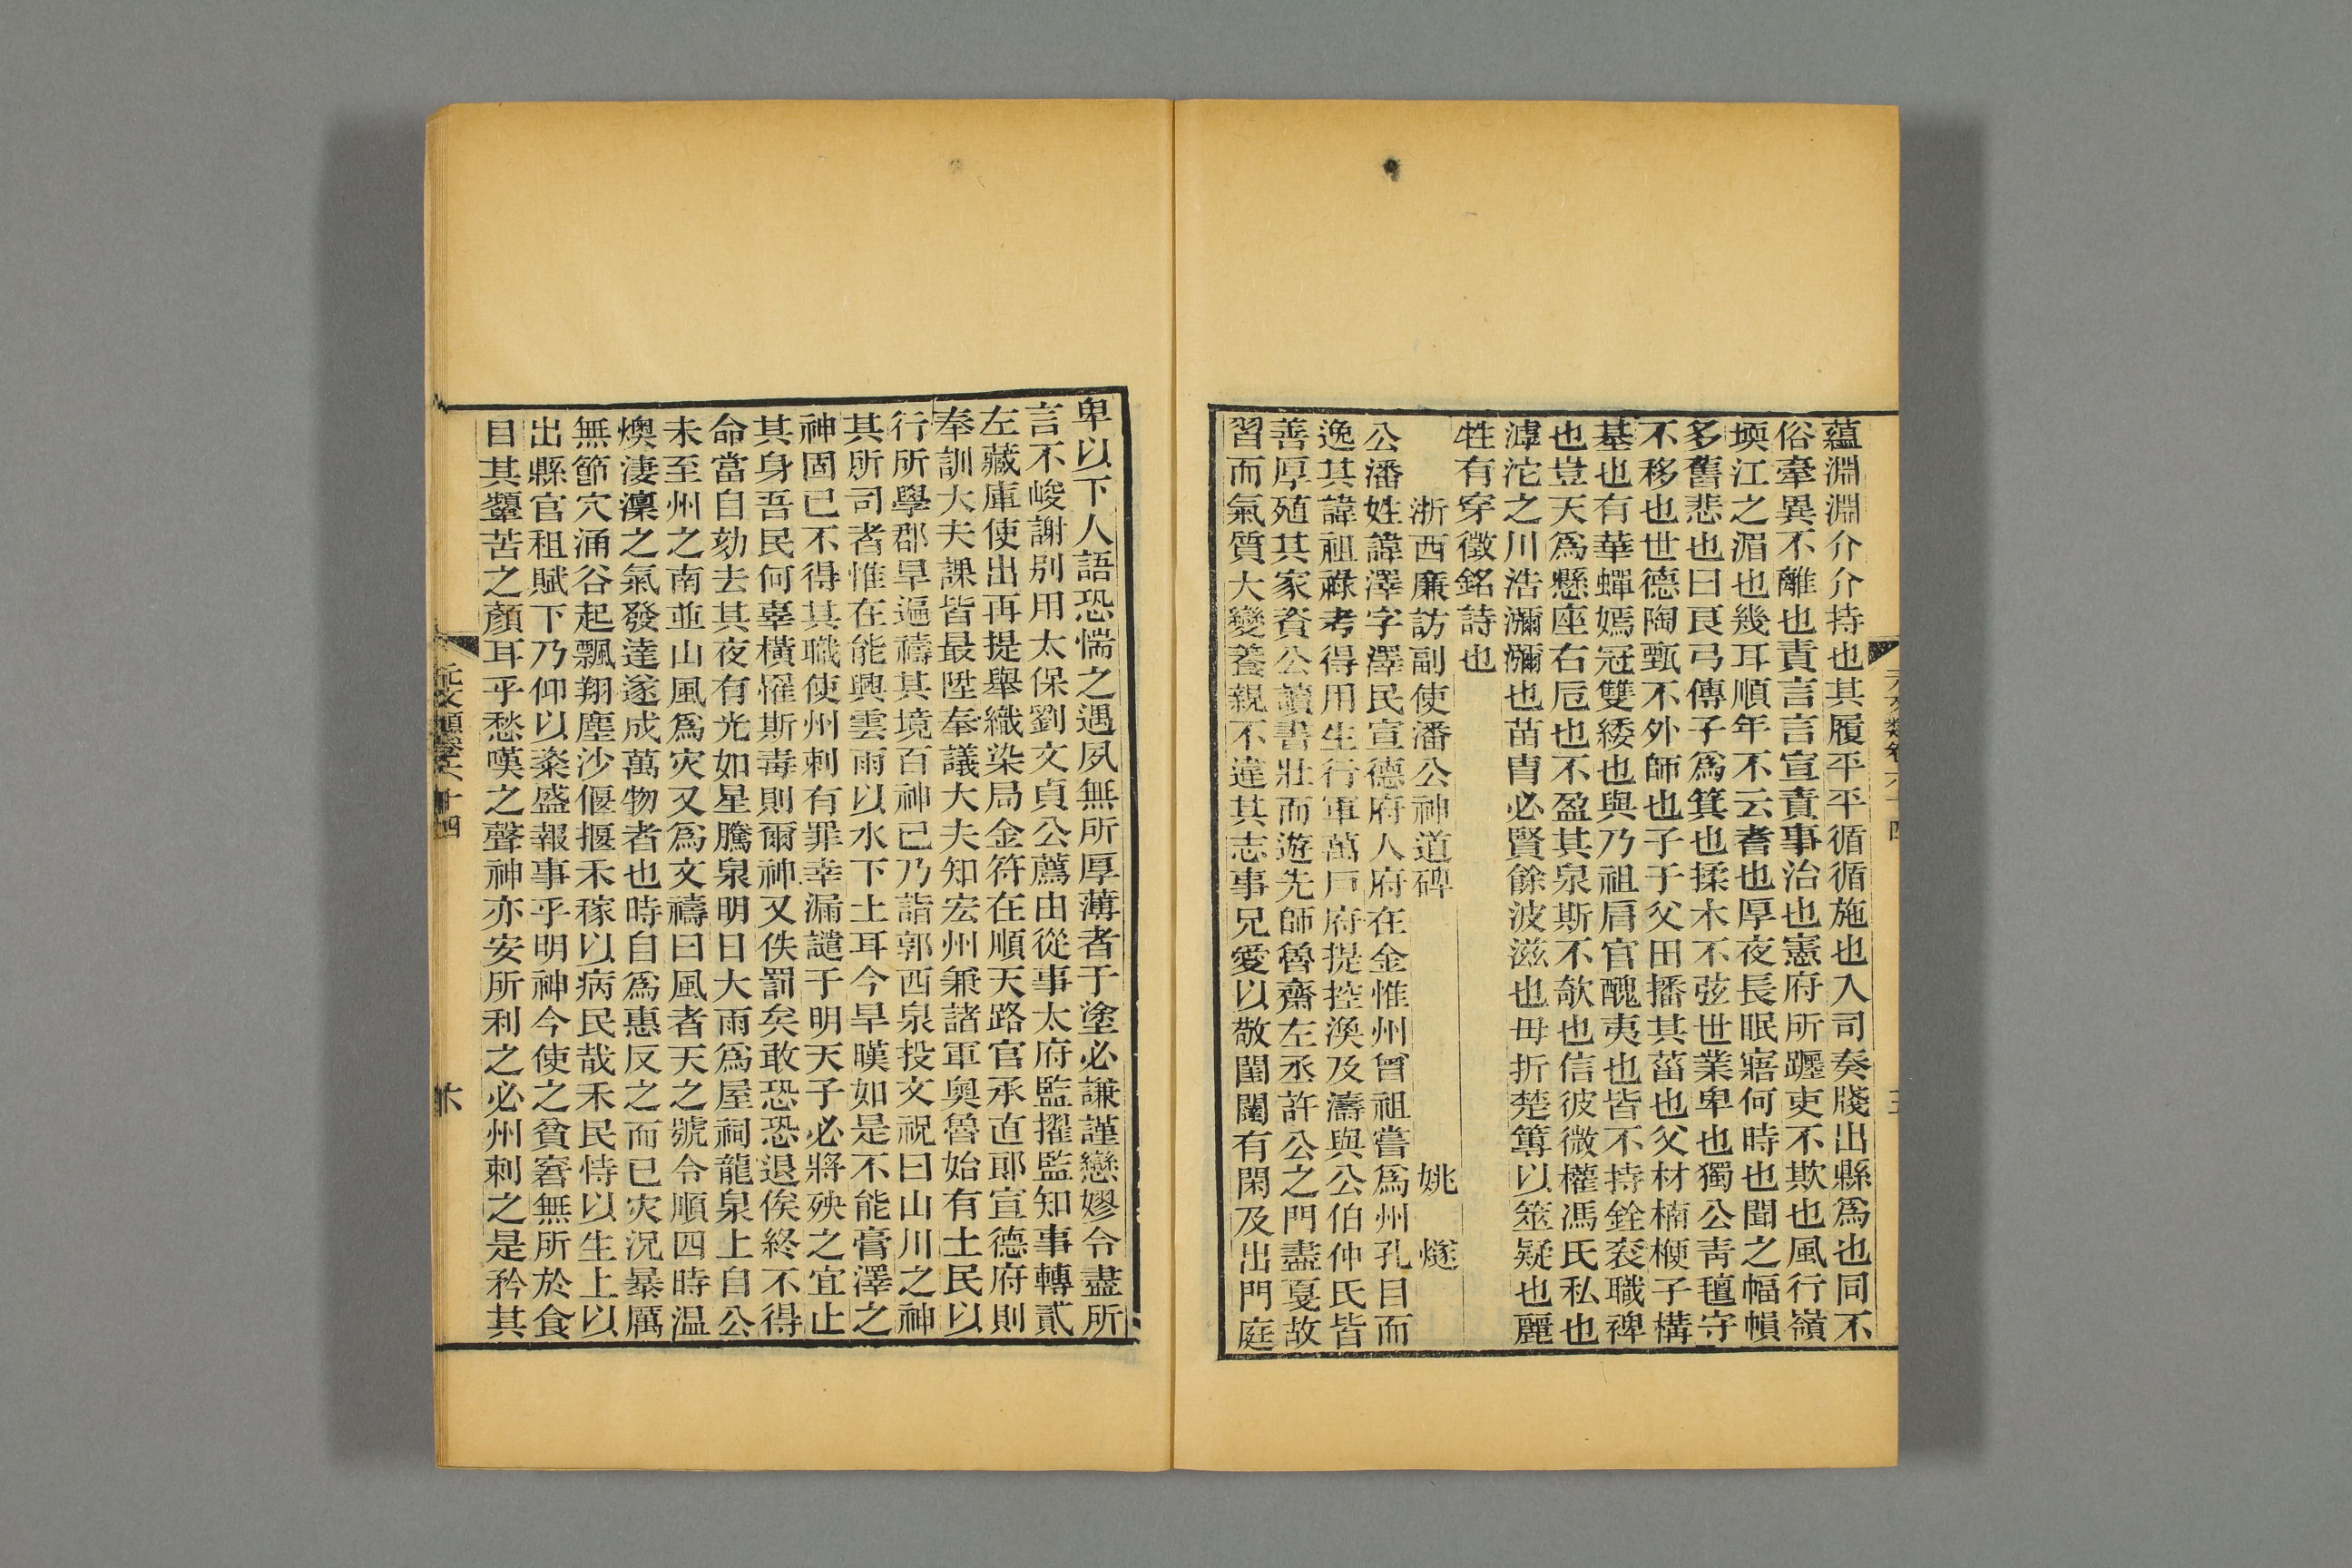 蘊淵淵介介持也其履平平循循施也入司奏牋出縣爲也同不
俗牽異不離也責言言宣責事治也憲府所躔吏不欺也風行嶺
堧江之湄也幾耳順年不云耆也厚夜長眠寤何時也聞之幅幀
多舊悲也曰艮弓傳子爲箕也揉木不弦世業卑也獨公靑氊守
不移也世德陶甄不外師也子于父田播其菑也父材楠楩子構
基也有華蟬嫣冠雙緌也與乃祖肩官醜夷也皆不持銓衮職裨
也豈天爲懸座右卮也不盈其泉斯不欹也信彼微權馮氏私也
滹沱之川浩瀰瀰也苗胄必賢餘波滋也毋折楚篿以筮疑也麗
牲有穿徵銘詩也
浙西廉訪副使潘公神道碑 姚燧
公潘姓諱澤字澤民宣德府人府在金惟州曾祖嘗爲州孔目而
逸其諱祖祿考得用生行軍萬戶府提控渙及濤與公伯仲氏皆
善厚殖其家資公讀書壯而遊先師魯齋左丞許公之門盡戛故
習而氣質大變養親不違其志事兄愛以敬閨闥有閑及出門庭
卑以下人語恐惴之遇夙無所厚薄者于塗必謙謹戀嫪令盡所
言不峻謝別用太保劉文貞公薦由從事太府監擢監知事轉貳
左藏庫使出再提舉織染局金符在順天路官承直郎宣德府則
奉訓大夫課皆最陞奉議大夫知宏州兼諸軍奧魯始有土民以
行所學郡旱遍禱其境百神已乃詣郭西泉投文祝曰山川之神
其所司者惟在能興雲雨以水下土耳今旱暵如是不能膏澤之
神固已不得其職使州刺有罪幸漏譴于明天子必將殃之宜止
其身吾民何辜橫罹斯毒則爾神又佚罰矣敢恐恐退俟終不得
命當自劾去其夜有光如星騰泉明日大雨爲屋祠龍泉上自公
未至州之南並山風爲灾又爲文禱曰風者天之號令順四時温
燠淒凜之氣發達遂成萬物者也時自爲惠反之而已灾況暴厲
無節穴涌谷起飄翔塵沙偃揠禾稼以病民哉禾民恃以生上以
出縣官租賦下乃仰以粢盛報事乎明神今使之貧窘無所於食
目其顰苦之顏耳乎愁嘆之聲神亦安所利之必州刺之是矜其
元文類卷六十四